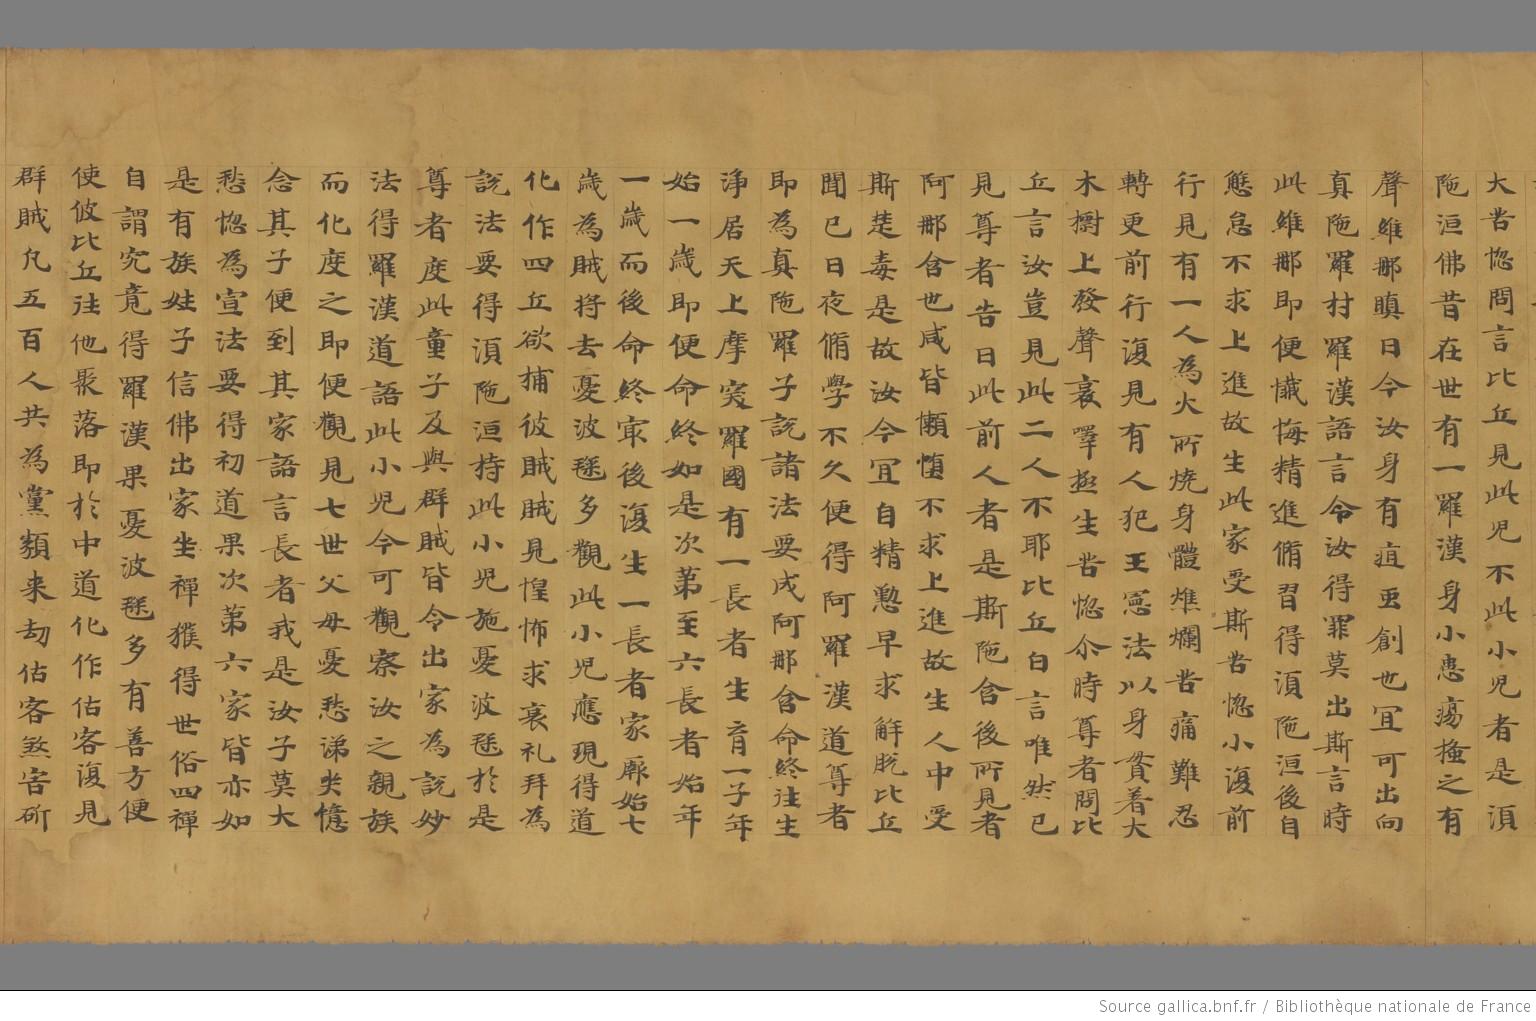 大苦惱問言比丘見此児不此小児者是湏
陁洹佛昔在世有一羅漢身小患瘍搔之有
聲維那瞋曰今汝身有疽虫創也冝可出向
真陁羅村羅漢語言令汝得罪莫出斯言時
此維那即便懴悔精進脩習得湏陁洹後自
懈怠不求上進故生此家受斯苦惱小復前
行見有一人為火所燒身體燋爛苦痛難忍
轉更前行復見有人犯王憲法以身貫著大
木樹上發聲哀嘷極生苦惱尒時尊者問比
丘言汝豈見此二人不耶比丘白言唯然已
見尊者告曰此前人者是斯陁含後所見者
阿那含也咸皆懶憜不求上進故生人中受
斯楚毒是故汝今冝自精懃早求解脫比丘
聞已日夜脩學不久便得阿羅漢道尊者
即為真陁羅子說諸法要成阿那含命終往生
淨居天上摩突羅國有一長者生育一子年
始一歲即便命終如是次第至六長者始年
一歲而後命終㝡後復生一長者家厥始七
歲為賊將去憂波毱多觀此小児應現得道
化作四丘欲捕彼賊賊見惶怖求哀礼拜為
說法要得湏陁洹持此小児施憂波毱於是
尊者度此童子及與群賊皆令出家為說妙
法得羅漢道語此小児今可觀察汝之親族
而化度之即便觀見七世父母憂愁涕哭憶
念其子便到其家語言長者我是汝子莫大
愁惱為宣法要得初道果次第六家皆亦如
是有族姓子信佛出家坐禪獲得世俗四禪
自謂究竟得羅漢果憂波毱多有善方便
使彼比丘往他聚落即於中道化作估客復見
群賊凡五百人共為黨類来劫估客煞害斫
Source gallica.bnf.fr / Bibliothèque nationale de France